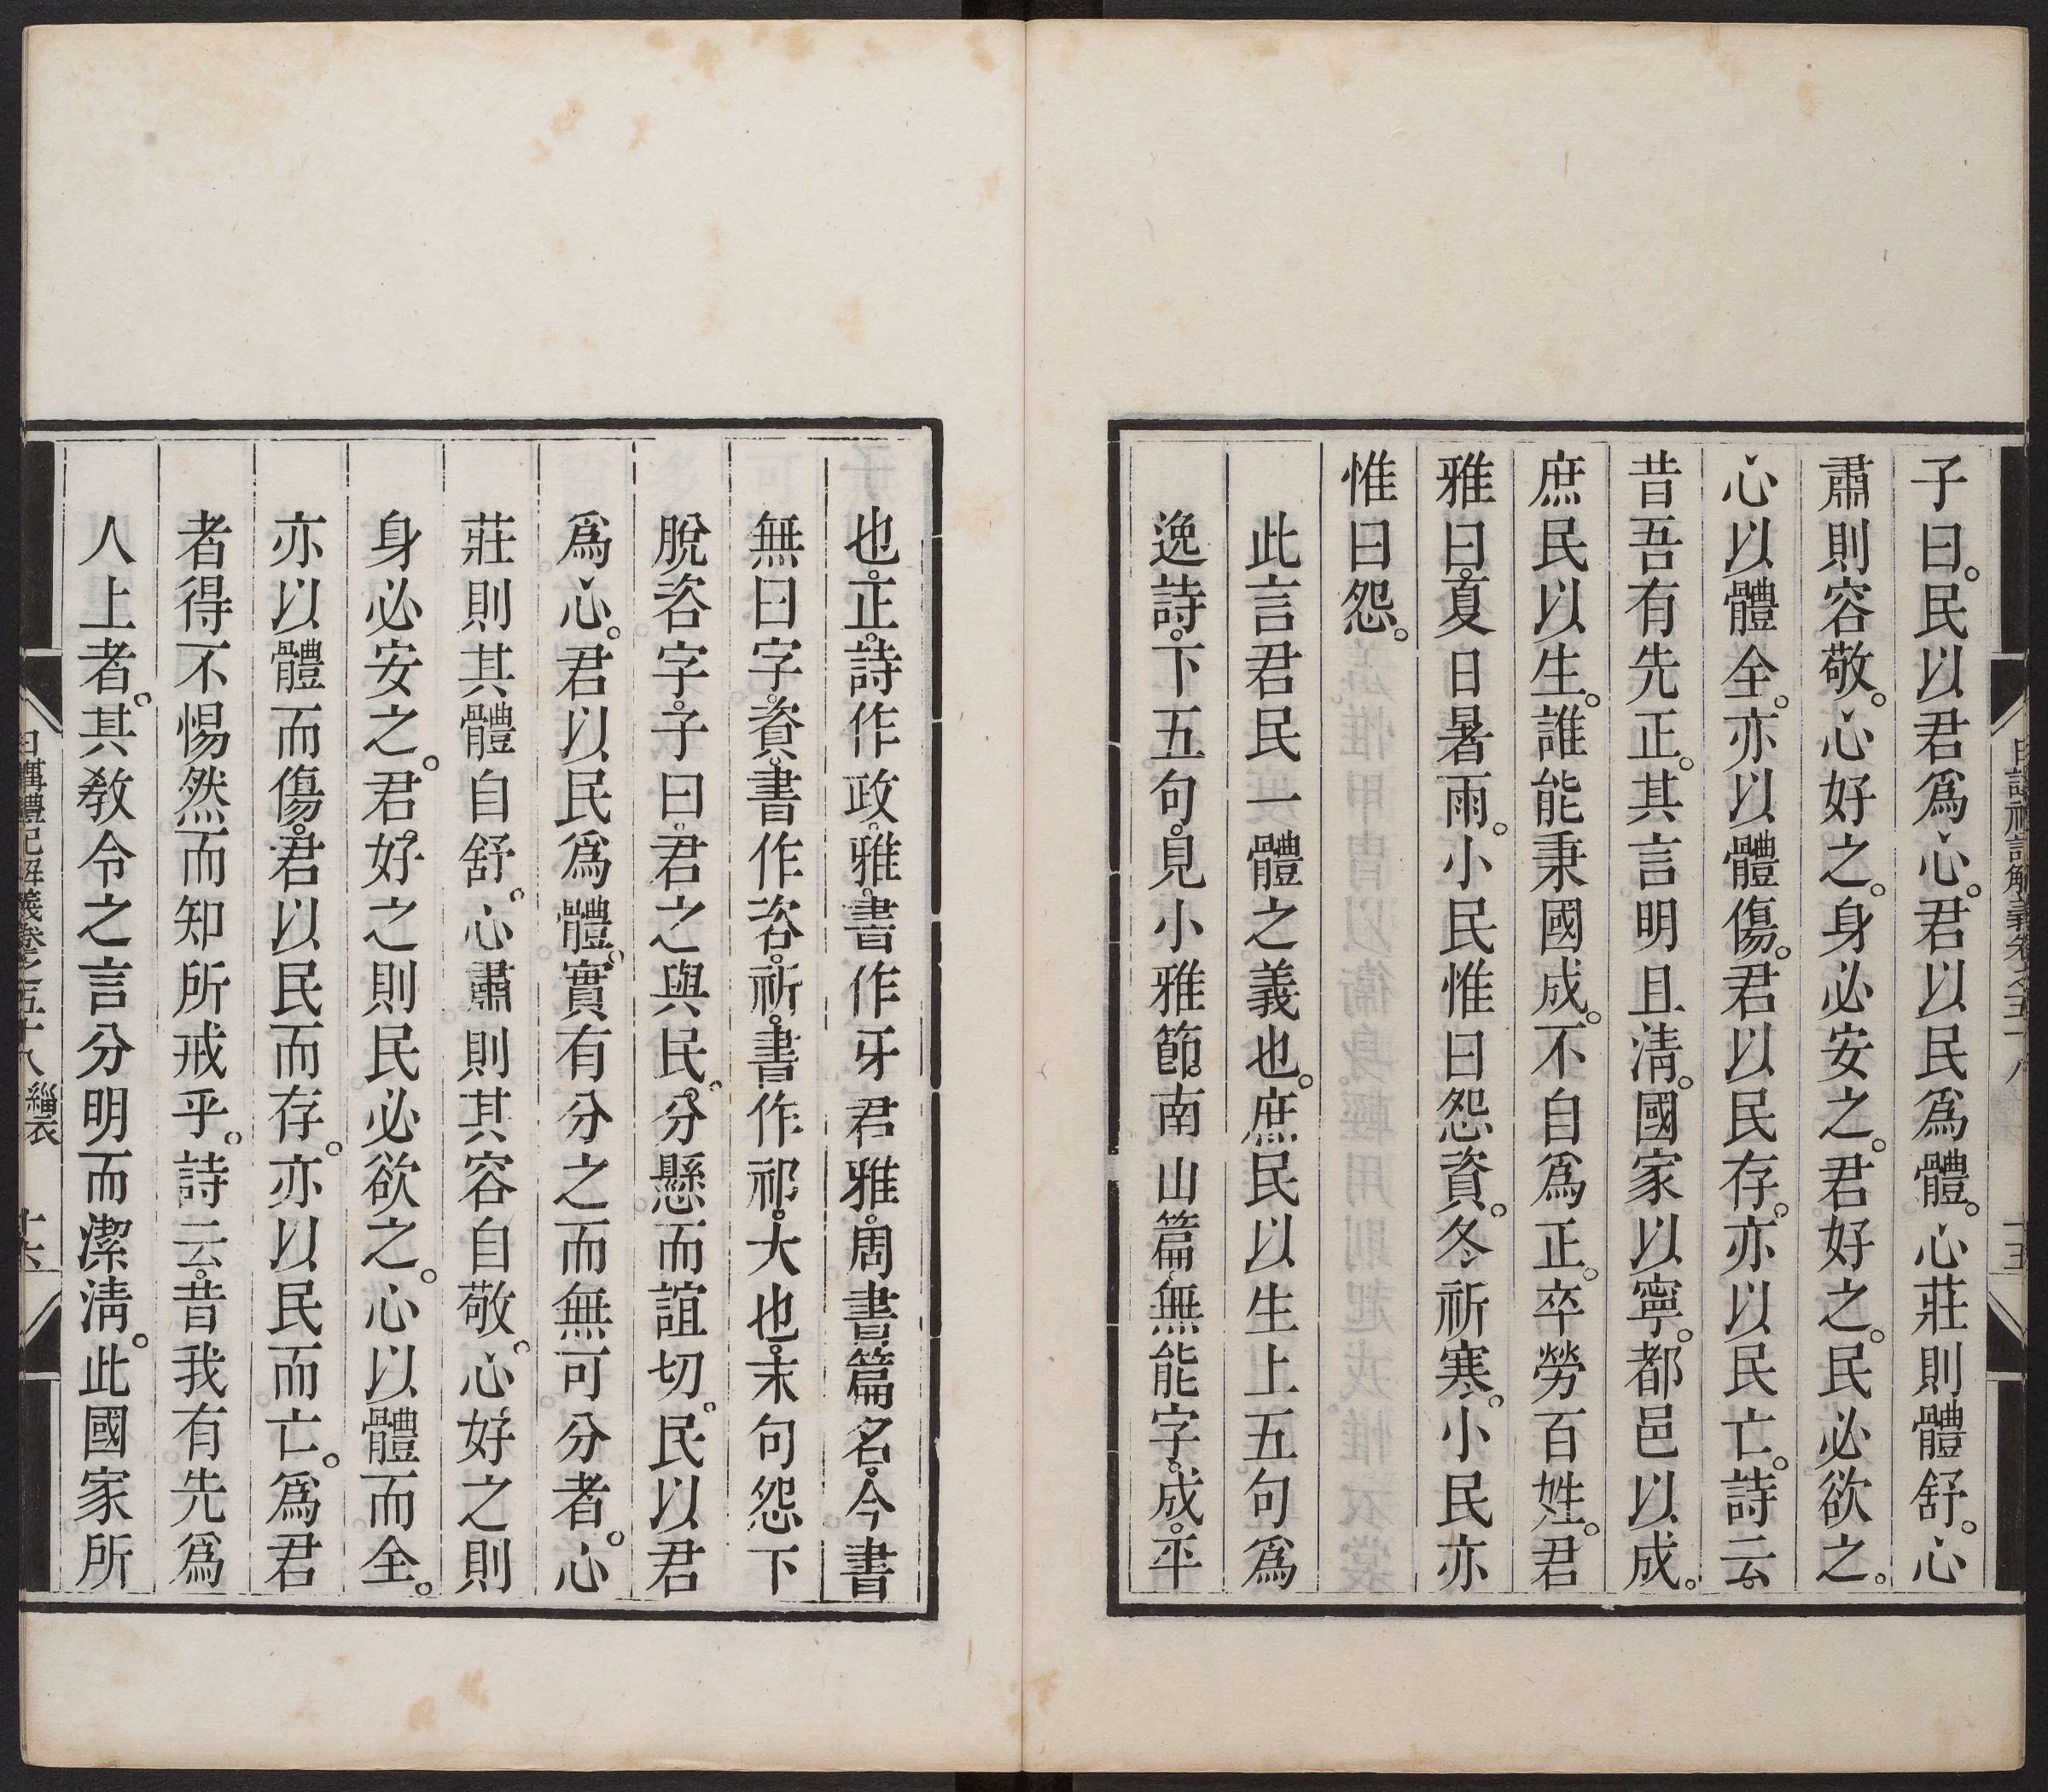 子曰。民以君爲心。君以民爲體。心莊則體舒。心
肅則容敬。心好之。身必安之。君好之。民必欲之。
心以體全。亦以體傷。君以民存。亦以民亡。詩云。
昔吾有先正。其言明且淸。國家以寧。都邑以成。
庶民以生。誰能秉國成。不自爲正。卒勞百姓。君
雅曰。夏日暑雨。小民惟曰怨資。冬祈寒。小民亦
惟曰怨。
此言君民一體之義也。庶民以生上五句爲
逸詩。下五句。見小雅節南山篇。無能字。成。平
也。正。詩作政。雅。書作牙君雅。周書篇名。今書
無曰字。資。書作咨。祈。書作祁。大也。末句怨下
脫咨字。子曰。君之與民。分懸而誼切。民以君
爲心。君以民爲體。實有分之而無可分者。心
莊則其體自舒。心肅則其容自敬。心好之則
身必安之。君好之則民必欲之。心以體而全。
亦以體而傷。君以民而存。亦以民而亡。爲君
者得不惕然而知所戒乎。詩云。昔我有先爲
人上者。其敎令之言分明而潔淸。此國家所
日講禮記解義卷之五十八 緇衣 十六